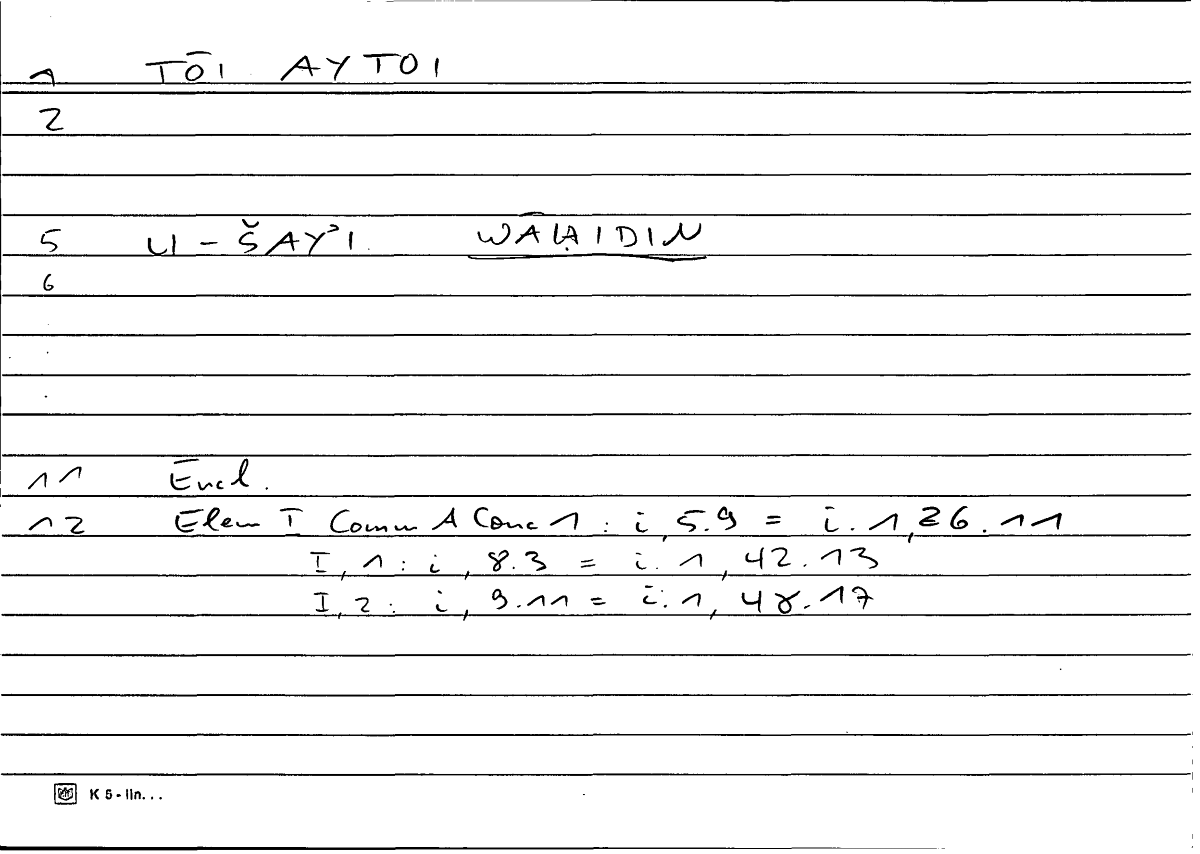 1 TŌI AYTOI
2
5 LI-ŠAYʾI. WĀḤIDIN
6
11 Eucl.
12 Elem I Comm A Conc 1 : i, 5.9 = i.1, 26.11
I, 1 : i, 8.3 = i.1, 42.13
I, 2 : i, 9.11 = i.1, 48.17
K 5 - lin...